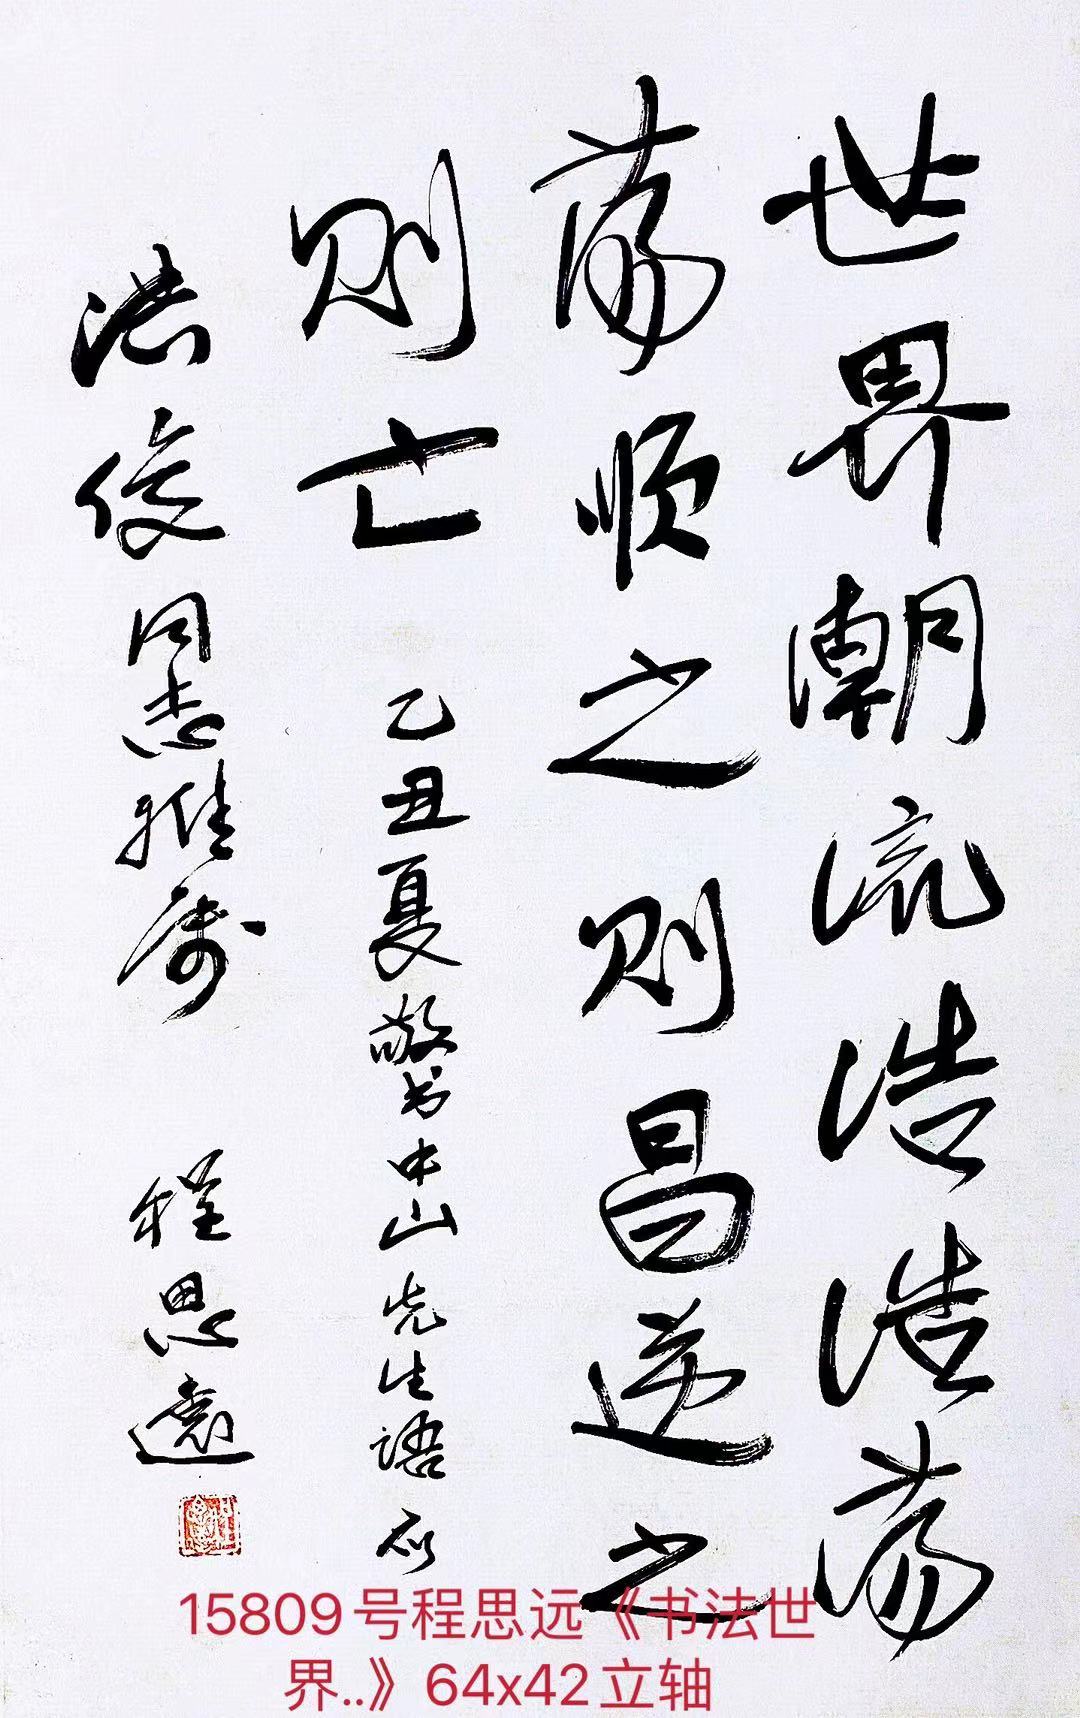 世界潮流浩浩荡
荡顺之则昌逆之
则亡 乙丑夏敬书中山先生语应
洪俊同志雅属 程思远
15809号程思远《书法世
界..》64x42立轴